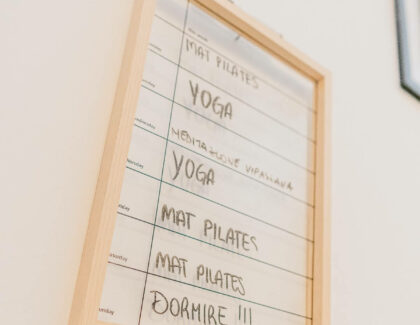 MAT PILATES
YOGA
MEDITAZIONE VIPASSANA
YOGA
MAT PILATES
MAT PILATES
DORMIRE !!!